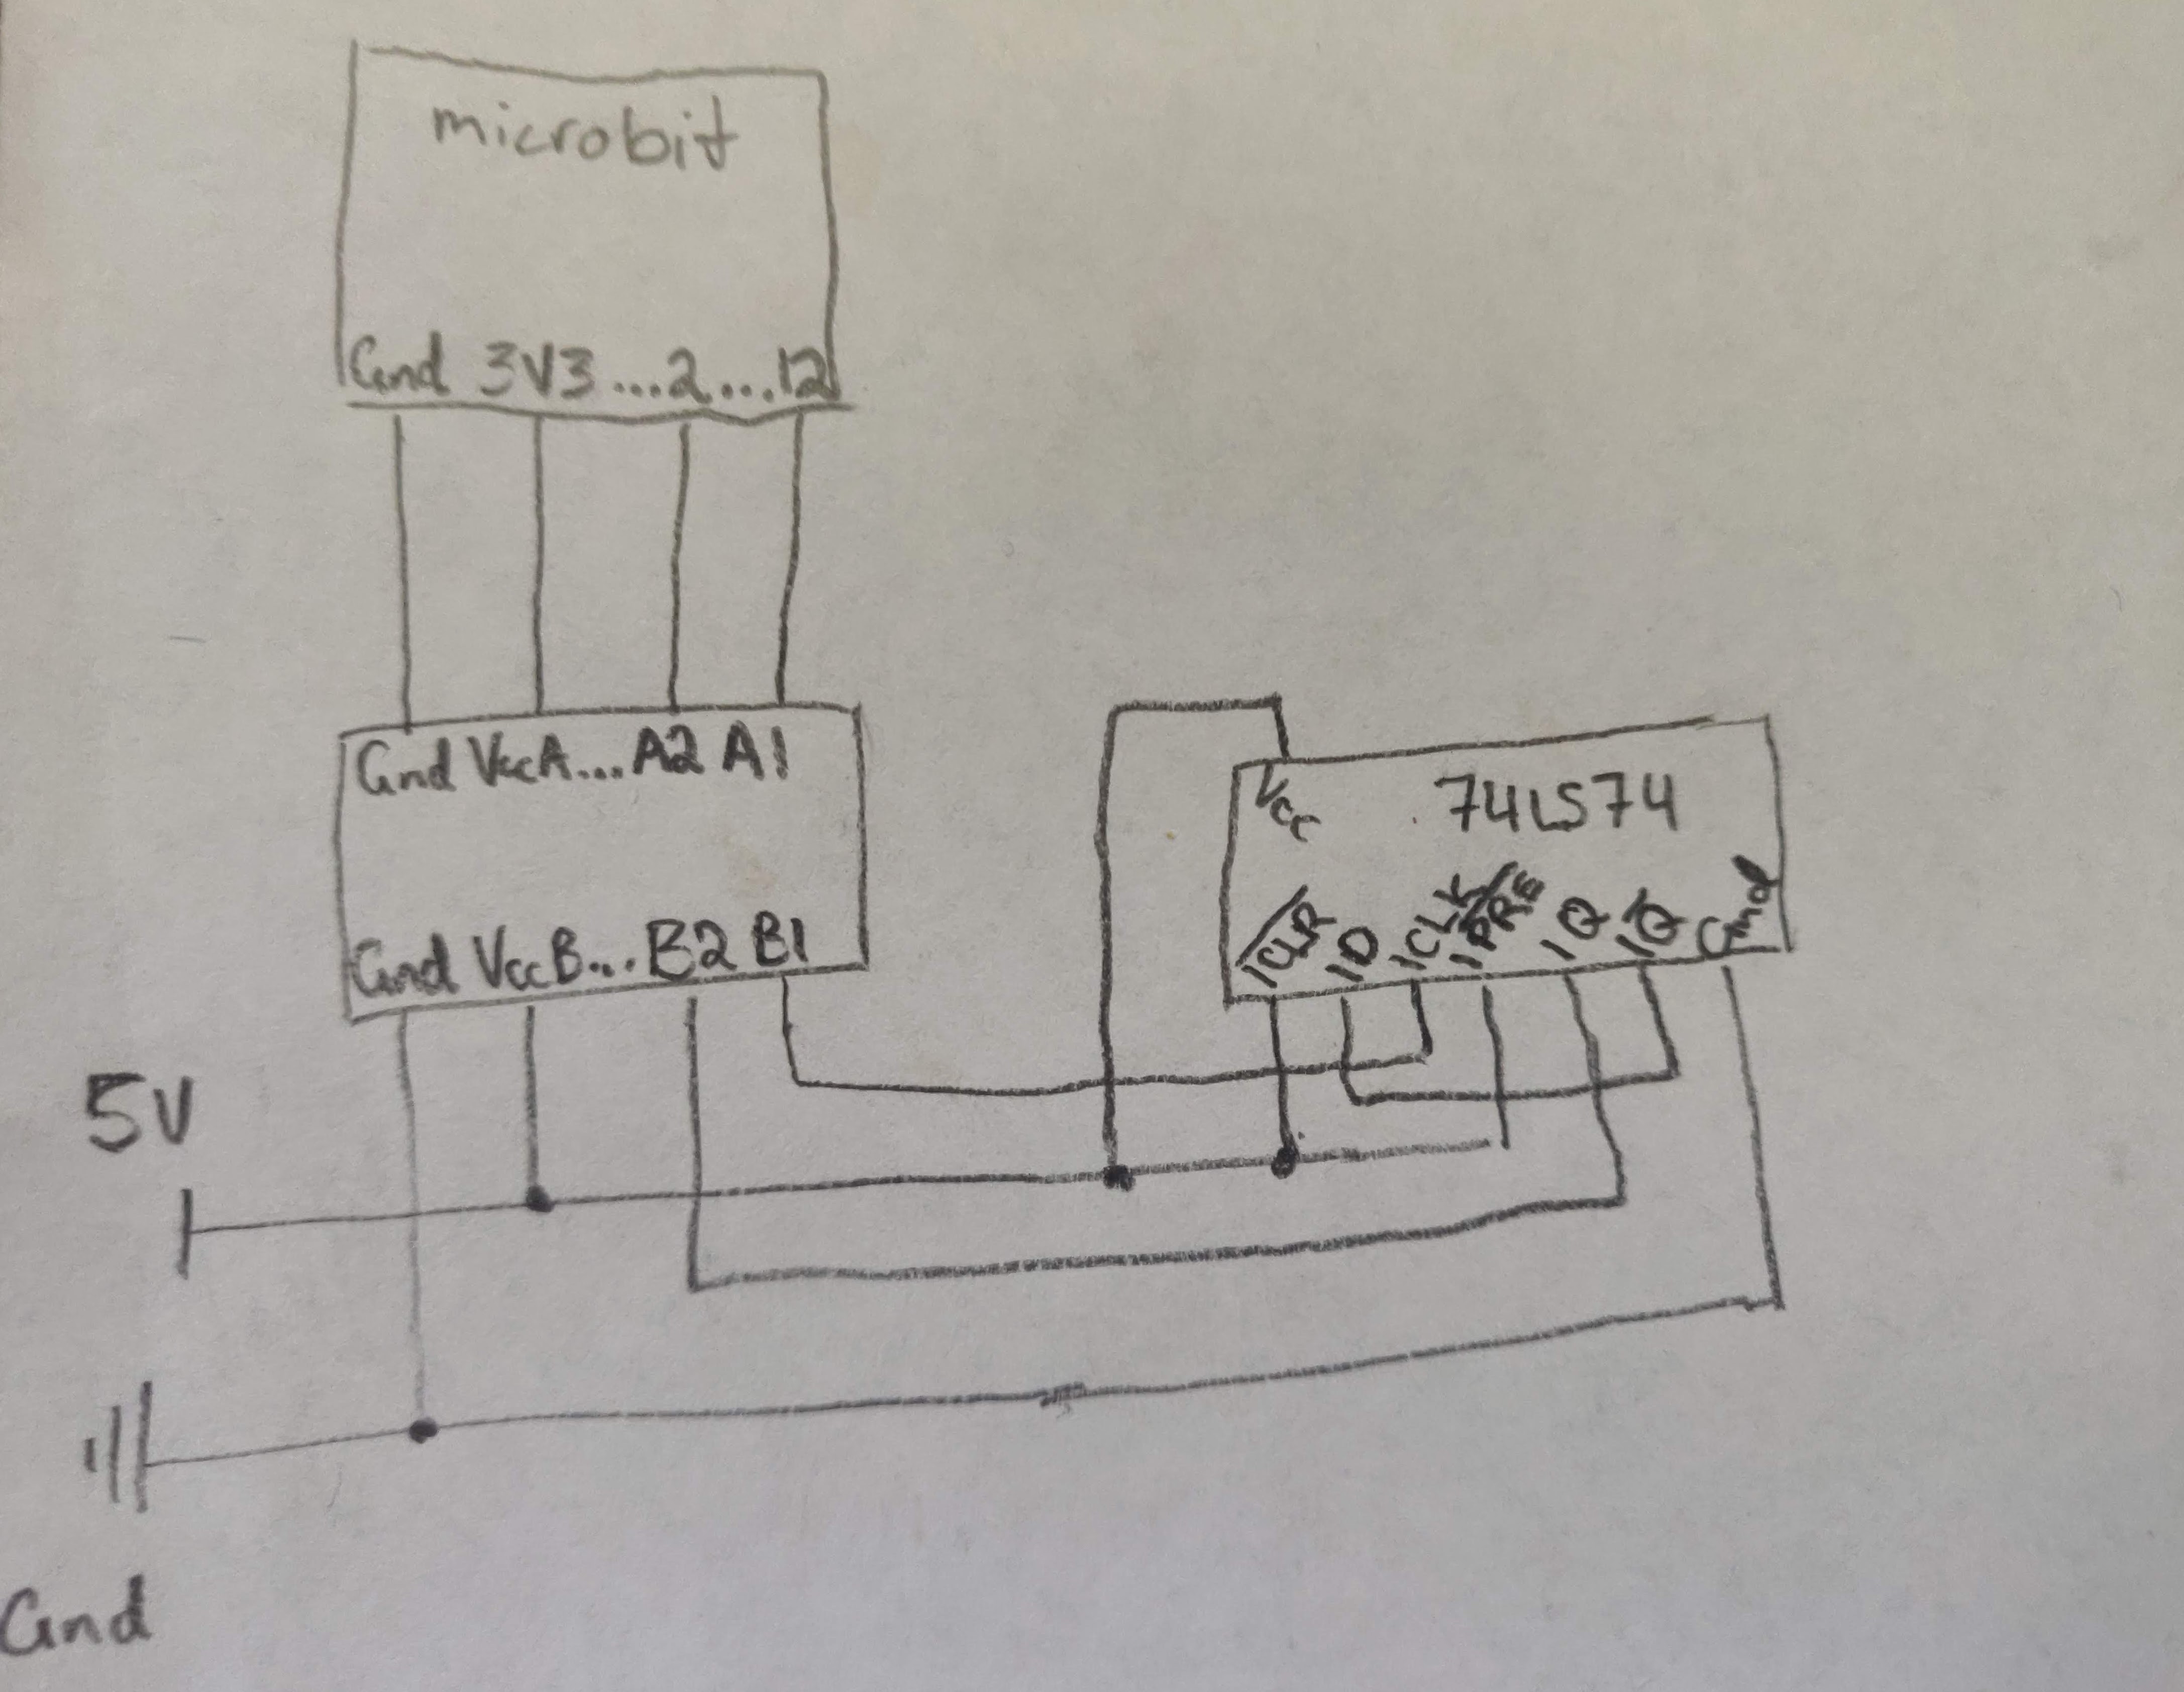 microbit
Gnd 3V3 ....2....12
Gnd VccA... A2 A1
Gnd VccB... B2 B1
Vcc 74LS74
1CLR 1D 1CLK 1PRE 1Q 1Q̅ Gnd
5V
Gnd